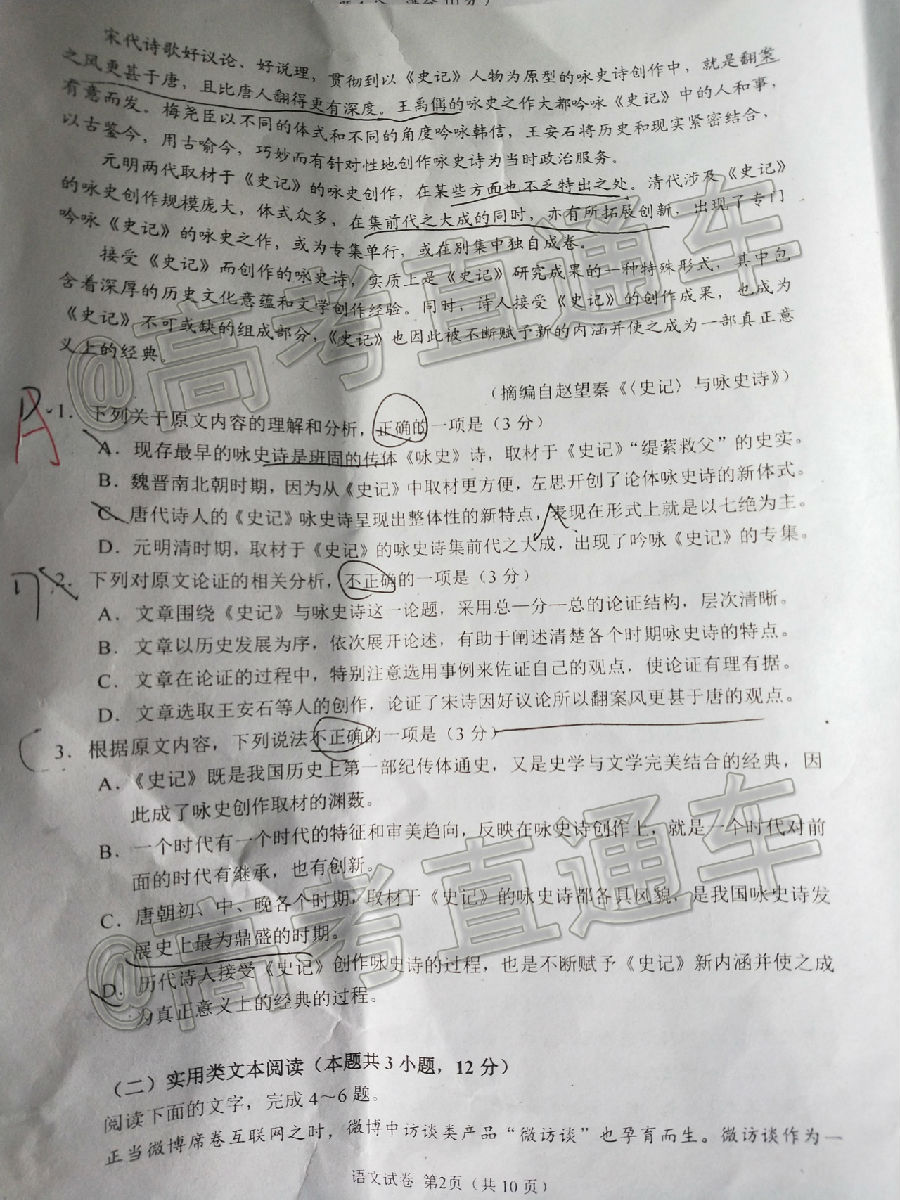 宋代诗歌好议论、好说理，贯彻到以《史记》人物为原型的咏史诗创作中，就是翻案
之风更甚于唐，且比唐人翻得更有深度。王禹偁的咏史之作大都吟咏《史记》中的人和事，
有意而发。梅尧臣以不同的体式和不同的角度吟咏韩信，王安石将历史和现实紧密结合，
以古鉴今，用古喻今，巧妙而有针对性地创作咏史诗为当时政治服务。
元明两代取材于《史记》的咏史创作，在某些方面也不乏特出之处。清代涉及《史记》
的咏史创作规模庞大，体式众多，在集前代之大成的同时，亦有所拓展创新，出现了专门
吟咏《史记》的咏史之作，或为专集单行，或在别集中独自成卷。
接受《史记》而创作的咏史诗，实质上是《史记》研究成果的一种特殊形式，其中包
含着深厚的历史文化意蕴和文学创作经验。同时，诗人接受《史记》的创作成果，也成为
《史记》不可或缺的组成部分，《史记》也因此被不断赋予新的内涵并使之成为一部真正意
义上的经典。
（摘编自赵望秦《〈史记〉与咏史诗》）
A
1．下列关于原文内容的理解和分析，正确的一项是（3 分）
A．现存最早的咏史诗是班固的传体《咏史》诗，取材于《史记》“缇萦救父”的史实。
B．魏晋南北朝时期，因为从《史记》中取材更方便，左思开创了论体咏史诗的新体式。
C．唐代诗人的《史记》咏史诗呈现出整体性的新特点，表现在形式上就是以七绝为主。
D．元明清时期，取材于《史记》的咏史诗集前代之大成，出现了吟咏《史记》的专集。
2．下列对原文论证的相关分析，不正确的一项是（3 分）
A．文章围绕《史记》与咏史诗这一论题，采用总—分—总的论证结构，层次清晰。
B．文章以历史发展为序，依次展开论述，有助于阐述清楚各个时期咏史诗的特点。
C．文章在论证的过程中，特别注意选用事例来佐证自己的观点，使论证有理有据。
D．文章选取王安石等人的创作，论证了宋诗因好议论所以翻案风更甚于唐的观点。
C
3．根据原文内容，下列说法不正确的一项是（3 分）
A．《史记》既是我国历史上第一部纪传体通史，又是史学与文学完美结合的经典，因
此成了咏史创作取材的渊薮。
B．一个时代有一个时代的特征和审美趋向，反映在咏史诗创作上，就是一个时代对前
面的时代有继承，也有创新。
C．唐朝初、中、晚各个时期，取材于《史记》的咏史诗都各具风貌，是我国咏史诗发
展史上最为鼎盛的时期。
D．历代诗人接受《史记》创作咏史诗的过程，也是不断赋予《史记》新内涵并使之成
为真正意义上的经典的过程。
（二）实用类文本阅读（本题共 3 小题，12 分）
阅读下面的文字，完成 4～6 题。
正当微博席卷互联网之时，微博中访谈类产品“微访谈”也孕育而生。微访谈作为一
语文试卷 第2页（共 10 页）
@高考直通车
@高考直通车